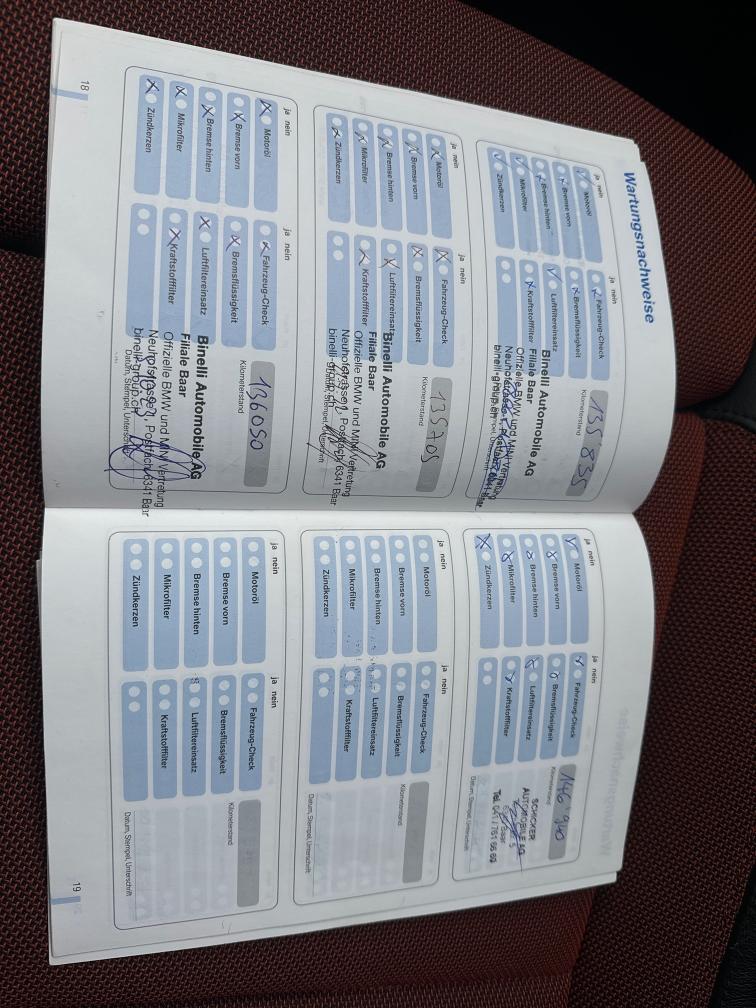 Wartungsnachweise
ja nein
ja nein
Motoröl
Fahrzeug-Check
Bremse vorn
Bremsflüssigkeit
Bremse hinten
Luftfiltereinsatz
Mikrofilter
Kraftstofffilter
Zündkerzen
Kilometerstand
135 835
Binelli Automobile AG
Filiale Baar
Offizielle BMW und MINI Vertretung
binelli-group.ch
Datum, Stempel, Unterschrift
ja nein
ja nein
Motoröl
Fahrzeug-Check
Bremse vorn
Bremsflüssigkeit
Bremse hinten
Luftfiltereinsatz
Mikrofilter
Kraftstofffilter
Zündkerzen
Kilometerstand
135705
Binelli Automobile AG
Filiale Baar
Offizielle BMW und MINI Vertretung
Neuhofstrasse 1, Postfach, 6341 Baar
binelli-group.ch
Datum, Stempel, Unterschrift
ja nein
ja nein
Motoröl
Fahrzeug-Check
Bremse vorn
Bremsflüssigkeit
Bremse hinten
Luftfiltereinsatz
Mikrofilter
Kraftstofffilter
Zündkerzen
Kilometerstand
136050
Binelli Automobile AG
Filiale Baar
Offizielle BMW und MINI Vertretung
Neuhofstrasse 1, Postfach, 6341 Baar
binelli-group.ch
Datum, Stempel, Unterschrift
18
ja nein
ja nein
Motoröl
Fahrzeug-Check
Bremse vorn
Bremsflüssigkeit
Bremse hinten
Luftfiltereinsatz
Mikrofilter
Kraftstofffilter
Zündkerzen
Kilometerstand
146 940
SCHICKER
AUTOMOBILE AG
Baar
Tel. 041 / 761 66 60
Datum, Stempel, Unterschrift
ja nein
ja nein
Motoröl
Fahrzeug-Check
Bremse vorn
Bremsflüssigkeit
Bremse hinten
Luftfiltereinsatz
Mikrofilter
Kraftstofffilter
Zündkerzen
Kilometerstand
Datum, Stempel, Unterschrift
ja nein
ja nein
Motoröl
Fahrzeug-Check
Bremse vorn
Bremsflüssigkeit
Bremse hinten
Luftfiltereinsatz
Mikrofilter
Kraftstofffilter
Zündkerzen
Kilometerstand
Datum, Stempel, Unterschrift
19